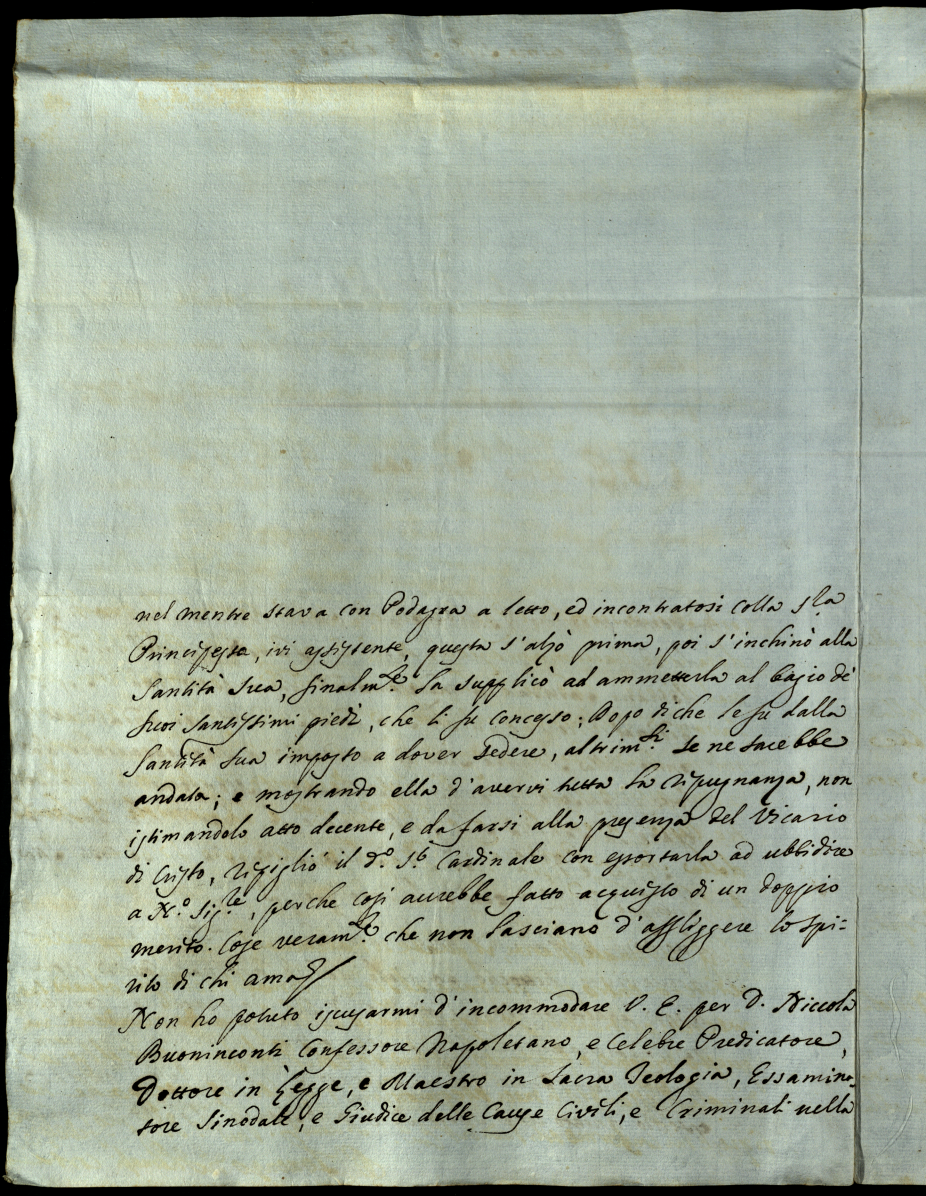 nel mentre stava con Podagra a letto, ed incontratosi colla S.ra
Principessa, ivi assistente, questa s'alzò prima, poi s'inchinò alla
Santità sua, finalm.te la supplicò ad ammetterla al bagio de'
suoi santissimi piedi, che li fu concesso; Dopo di che le fu dalla
Santità sua imposto a dover sedere, altrim.ti se ne sarebbe
andata; e mostrando ella d'avervi tutta la ripugnanza, non
istimandolo atto decente, e da farsi alla presenza del Vicario
di Cristo, ripigliò il d.o S.r Cardinale con essortarla ad ubbidire
a N.o Sig.re, perche così avrebbe fatto acquisto di un doppio
merito. Cose veram.te che non lasciano d'affliggere lo spi=
rito di chi ama
Non ho potuto iscusarmi d'incommodare V. E. per D. Niccola
Buoninconti Confessore Napoletano, e Celebre Predicatore,
Dottore in Legge, e Maestro in Sacra Teologia, Essamina-
tore Sinodale, e Giudice delle Cause Civili, e Criminali nella